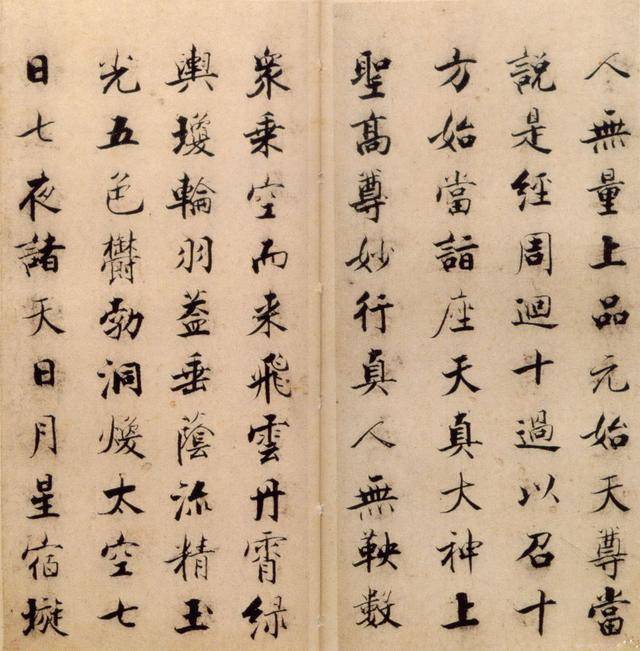 人無量上品元始天尊當
說是經周迴十過以召十
方始當詣座天真大神上
聖高尊妙行真人無鞅數
衆乗空而来飛雲丹霄緑
輿瓊輪羽葢垂蔭流精玉
光五色欝勃洞煥太空七
日七夜諸天日月星宿璇